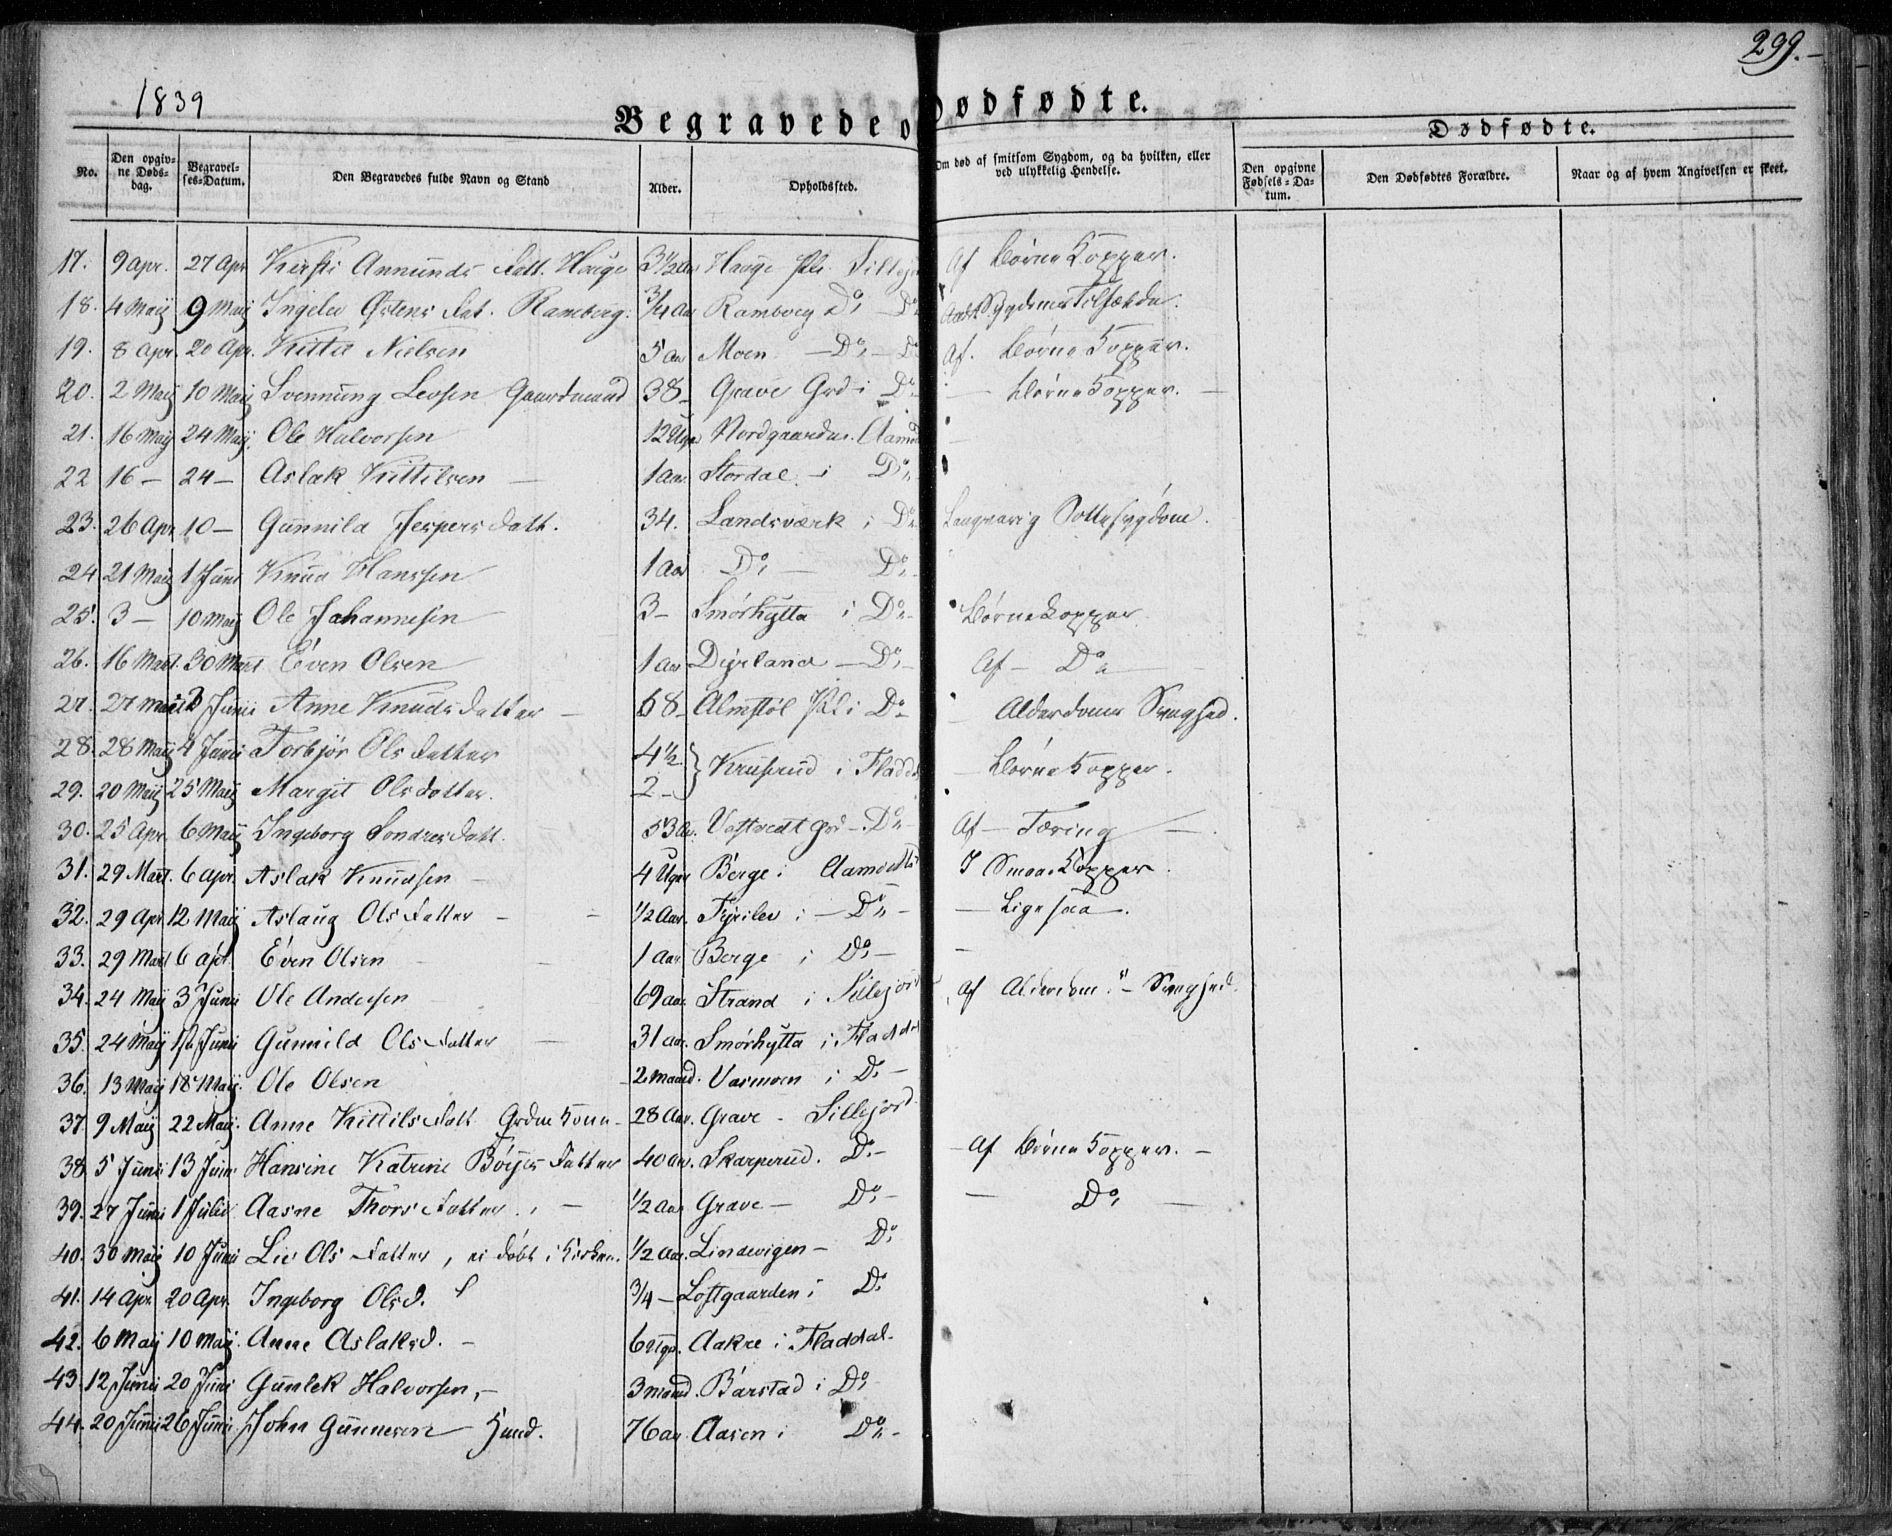 299.
1839
Begravede o Dødfødte.
Dødfødte.
No. Den opgivne Dødsdag. Begravelses=Datum. Den Begravedes fulde Navn og Stand Alder. Opholdssted. Om død af smitsom Sygdom, og da hvilken, eller ved ulykkelig Hendelse. Den opgivne Fødsels=Datum. Den Dødfødtes Forældre. Naar og af hvem Angivelsen er skeet.
17. 9 Apr. 27 Apr Kirsti Annunds Datt. Hauge 3½ Aar Hauge Sillej Af Børne Kopper.
18. 4 Maij 9 Maij Ingeler Østens Dat. Ramberg. 3/4 Aar Ramberg Do Do
19. 8 Apr. 20 Apr. Kittel Nielsen 5 Aar Moen — Do — Do Af. Børne Kopper.
20. 2 Maij 10 Maij Svennung Levsen Gaardmand 38 — Grave Grd i Do — Børne Kopper. —
21. 16 Maij 24 Maij. Ole Halvorsen 12 Uger Nordgaarden. Aamo
22 16 — 24 — Aslak Kittilsen — 1 Aar. Stordal — i Do
23. 26 Apr 10 — Gunnila Jespers Datt. 34. Landsværk i Do Langvarig Sottesygdom.
24 21 Maij 1 Juni Knud Hanssen 1 Aar Do — Do
25. 3 — 10 Maij Ole Johannesen 3 — Smørhytta i Do Børnekopper
26. 16 Mart. 30 Mart Even Olsen 1 Aar Dyrland — Do — Af — Do —
27. 27 Maij 3 Junii Anne Knudsdatter — 68 — Almstøl Pl. i Do — Alderdoms Svaghed.
28. 28 Maij 4 Junii Torbjør Olsdatter 4½ } Kruserud i Fladda — Børne Kopper.
29. 20 Maij 25 Maij Margit Olsdatter. 2 —
30. 25 Apr. 6 Maij Ingeborg Sondresdatt. 53 Aar. Vastvedt Grd — Do — Af — Tæring —
31. 29 Mart. 6 Apr. Aslak Knudsen — 4 Uger Berge i Aamodts I Smaa Kopper.
32. 29 Apr. 12 Maij Aslaug Olsdatter — — ½ Aar. Fyrilev i — Do — — Ligesaa.
33. 29 Mart 6 Apr. Even Olsen — 1 Aar Berge i Do — —
34. 24 Maij 3 Junii Ole Andersen — 69 Aar Strand i Sillejor Af Alderdoms — Svaghed.
35. 24 Maij Junii Gunnild Olsdatter — 31 Aar. Smørhytta i Fladda
36. 13 Maij 18 Maij. Ole Olsen — 2 Maand. Vasmoen i Do —
37. 9 Maij 22 Maij. Anne Kittilsdatt Grdm Kone — 28 Aar. Grave — Sillejord.
38. 5 Juni 13 Juni Hansine Katrine Børjesdatter 40 Aar. Skarperud. Do — — Af Børne Kopper. —
39. 27 Junii 1 Julii Aasne Thorsdatter. — ½ Aar Grave — Do — — Do —
40. 30 Maij 10 Juni Liv Olsdatter, ei døbt i Kirken. ½ Aar. Lindevigen — Do
41. 14 Apr. 20 Apr. Ingeborg Olsd. 3/4 — Loftgaarden i Do
42. 6 Maij 10 Maij. Anne Aslaksd. — 6 Uger. Aakre i Fladdal —
43. 12 Junii 20 Juni Gunlek Halvorsen, — 3 Maand. Barstad i Do
44. 20 Junii 26 Junii John Gunnersen 76 Aar Aasen i Do —